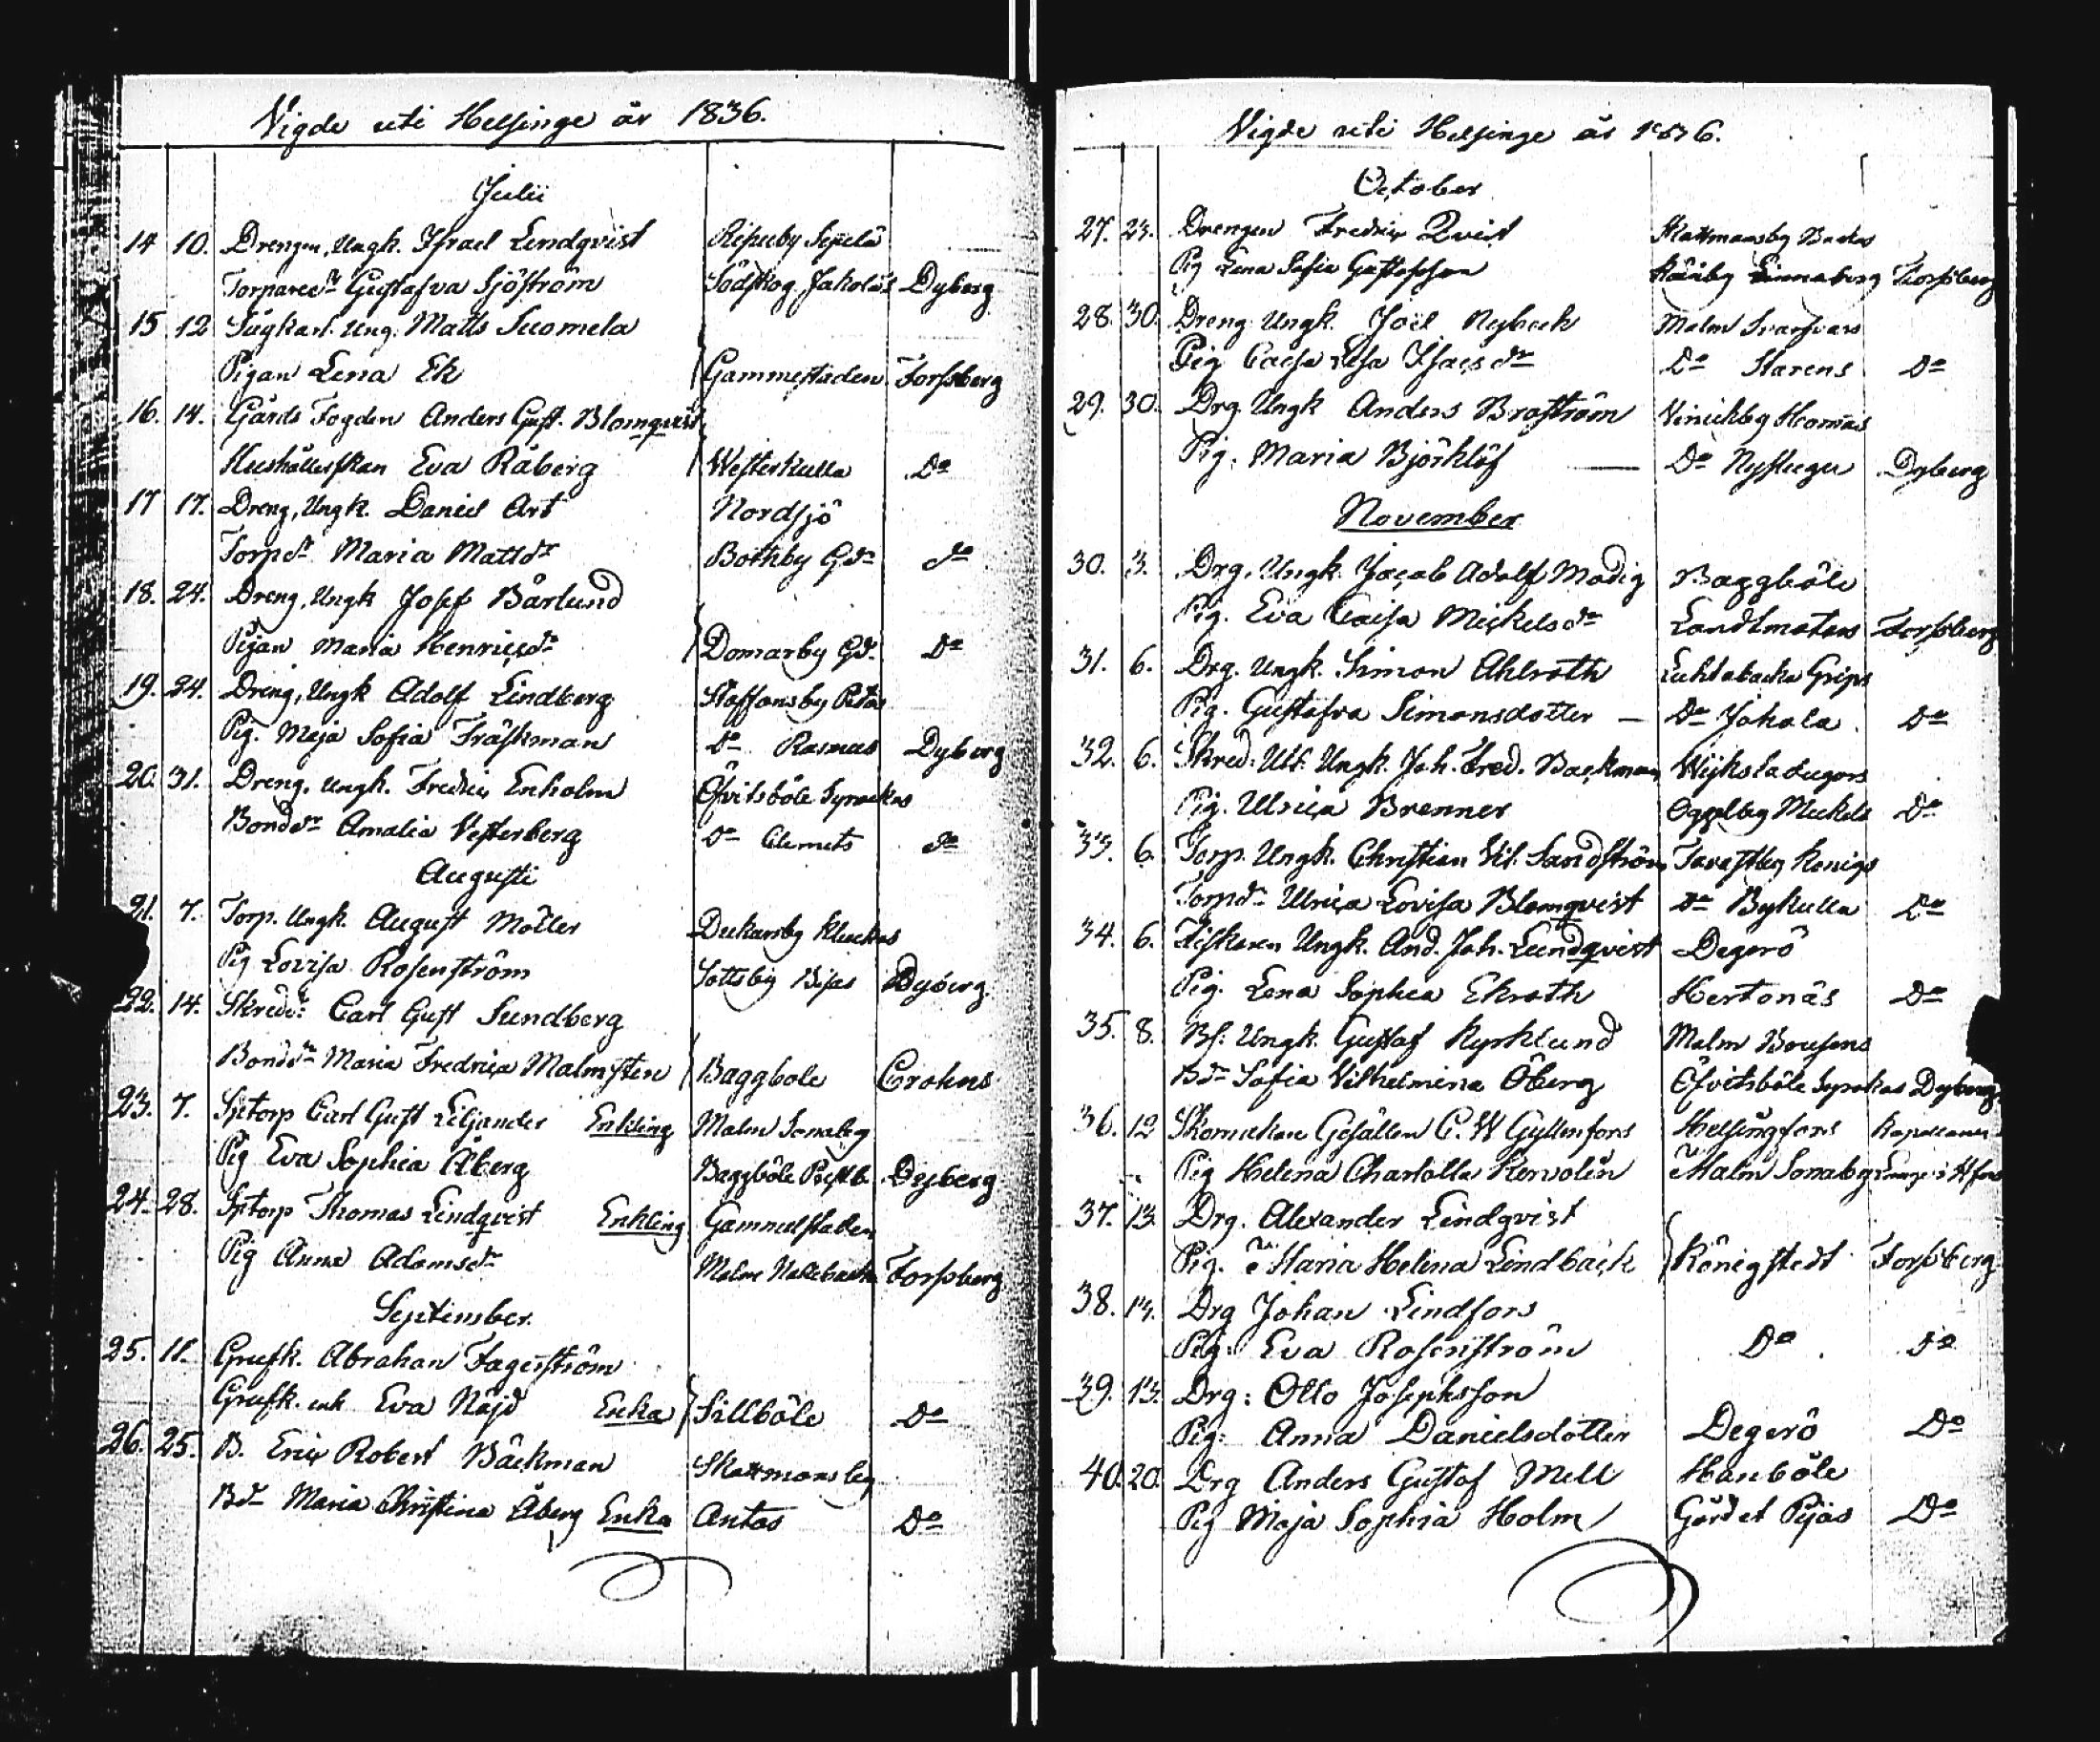 Vigde uti Helsinge år 1836.
Julii
14 10. Drengen, Ungk. Israel Lindqvist Ripuby Sepelä
Torpared:r Gustafva Sjöström Södskog Jakolas Dyberg
15 12 Sågkarl. Ung. Matts Suomela
Pigan Lena Ek Gammelstaden Forssberg
16. 14. Gårds Fogden Anders Gust. Blomqvist
Hushållerskan Eva Råberg Westerkulla Do
17 17. Dreng, Ungk. Daniel Art Nordsjö
Torpdr Maria Mattsdr Bothby Gd. do
18. 24. Dreng, Ungk Josef Bårlund
Pigan Maria Henricsdr Domarby Gd. Do
19. 24. Dreng, Ungk Adolf Lindberg Staffansby Petas
Pig. Maja Sofia Träskman Do Rasmas Dyberg
20. 31. Dreng. Ungk. Fredric Enholm Öfvitsböle Syrackas
Bonddr Amalia Vesterberg Do Clemets do
Augusti
21. 7. Torp. Ungk. August Möller Dickursby Kluckas
Pig Lovisa Rosenström Sottsby Dyberg.
22. 14. Skredd: Carl Gust Sundberg
Bonddr Maria Fredrica Malmsten Baggbole Crohns
23. 7. Sptorp Carl Gust Liljander Enkling Malm Sonaby
Pig Eva Sophia Åberg Baggböle Dyberg
24. 28. Sptorp Thomas Lindqvist Enkling Gammelstaden
Pig Anna Adamsdr Malm Nallebacka Forssberg
September.
25. 11. Grufk. Abraham Fagerström
Grufk. enk Eva Nöjd Enka Sillböle Do
26. 25. B. Eric Robert Bäckman Skattmansby
Bdr Maria Christina Åberg Enka Antas Do
Vigde uti Helsinge år 1836.
October
27. 23. Drengen Fredric Qvist Skattmansby Backas
Pig Lena Sofia Gustafsson Forssberg
28. 30. Dreng Ungk. Joel Nybeck Malm Svarfvars
Pig Caisa Lisa Isacsdr Do Starens Do
29. 30. Drg. Ungk Anders Broström Vinickby Thomas
Pig. Maria Björklöf Do Nystugu Dyberg
November
30. 3. Drg. Ungk. Jacob Adolf Modig Baggböle
Pig. Eva Caisa Mickelsdr Landtmaters Forssberg
31. 6. Drg. Ungk. Simon Ahlroth Luhtabacka Grips
Pig. Gustafva Simonsdotter — Do Johala Do
32. 6. Skred. Ungk. Joh. Fred. Backman Wijksladugård
Pig. Ulrica Brenner Oggelby Mickels Do
33. 6. Torp. Ungk. Christian Vil. Sandström Tavastby Kenigs
Torpdr Ulrica Lovisa Blomqvist Do Bykulla Do
34. 6. Fiskaren Ungk. And. Joh. Lundqvist Degerö
Pig. Lena Sophia Ekroth Hertonäs Do
35. 8. Bs. Ungk. Gustaf Kyrklund Malm Bousens
Bdr Sofia Vilhelmina Öberg Öfvitsböle Syrakas Dyberg
36. 12 Skomakare Gesällen C. W Gyllenfors Helsingfors Kapellanen
Pig Helena Charlotta Kervolin Malm Sonaby
37. 13. Drg. Alexander Lindqvist
Pig. Maria Helena Lindbäck Königstedt Forssberg
38. 13. Drg Johan Lindfors
Pig. Eva Rosenström Do. Do
39. 13. Drg: Otto Josephsson
Pig: Anna Danielsdotter Degerö Do
40. 20. Drg Anders Gustaf Mell Hanböle
Pig Maja Sophia Holm Gårdet Pijas Do